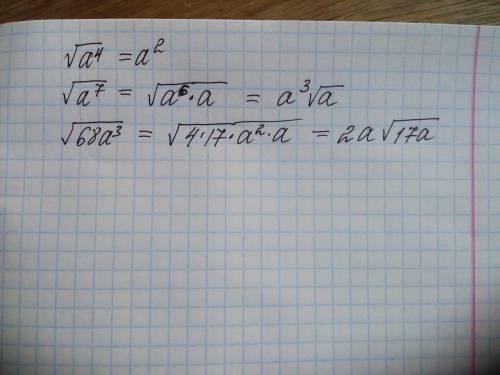 √a⁴ = a²
√a⁷ = √a⁶·a = a³√a
√68a³ = √4·17·a²·a = 2a√17a